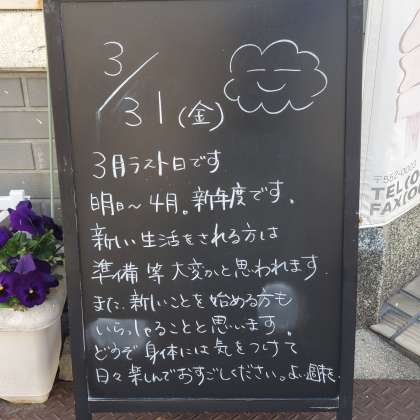 3/31(金)
3月ラスト日です
明日～4月。新年度です。
新しい生活をされる方は
準備等大変かと思われます.
また、新しいことを始める方も
いらっしゃることと思います。
どうぞ身体には気をつけて
日々楽しんでおすごしください。よい週末を
〒552-00
TEL
FAX